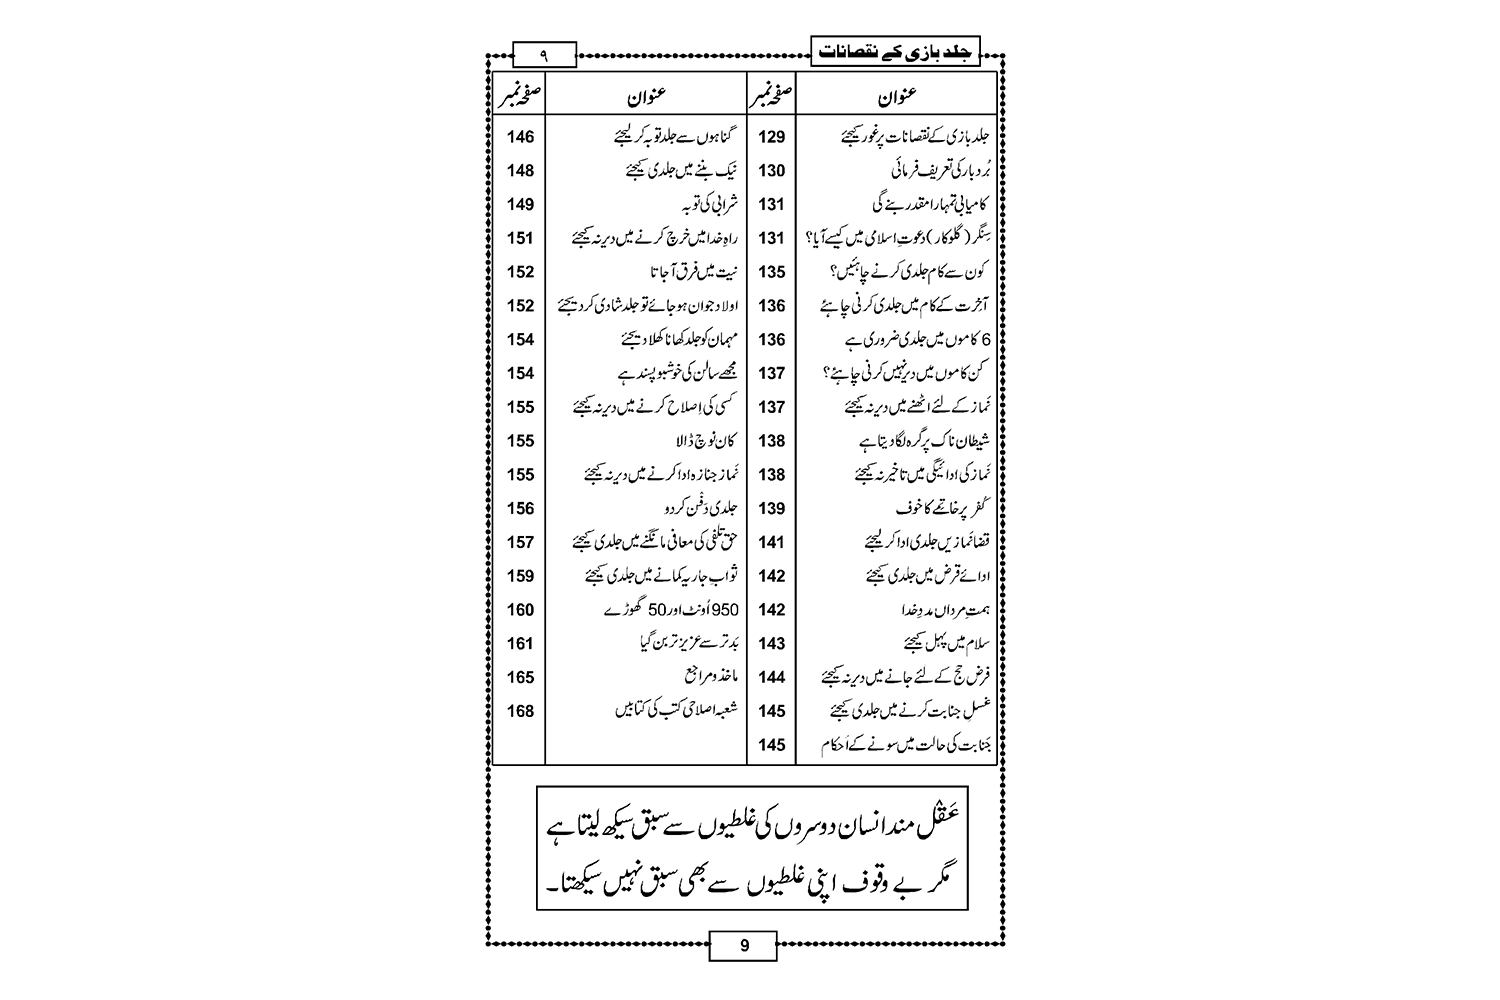 جلد بازی کے نقصانات ۹
عنوان صفحہ نمبر عنوان صفحہ نمبر
جلد بازی کے نقصانات پر غور کیجئے 129 گناہوں سے جلد توبہ کرلیجئے 146
بُردبار کی تعریف فرمائی 130 نیک بننے میں جلدی کیجئے 148
کامیابی تمہارا مقدر بنے گی 131 شرابی کی توبہ 149
سِنگر (گلوکار) دعوتِ اسلامی میں کیسے آیا؟ 131 راہِ خدا میں خرچ کرنے میں دیر نہ کیجئے 151
کون سے کام جلدی کرنے چاہئیں؟ 135 نیت میں فرق آجاتا 152
آخِرت کے کام میں جلدی کرنی چاہئے 136 اولاد جوان ہوجائے تو جلد شادی کردیجئے 152
6 کاموں میں جلدی ضروری ہے 136 مہمان کو جلد کھانا کھلا دیجئے 154
کن کاموں میں دیر نہیں کرنی چاہئے؟ 137 مجھے سالن کی خوشبو پسند ہے 154
نَماز کے لئے اٹھنے میں دیر نہ کیجئے 137 کسی کی اِصلاح کرنے میں دیر نہ کیجئے 155
شیطان ناک پر گرہ لگا دیتا ہے 138 کان نوچ ڈالا 155
نَماز کی ادائیگی میں تاخیر نہ کیجئے 138 نَماز جنازہ ادا کرنے میں دیر نہ کیجئے 155
کُفر پر خاتمے کا خوف 139 جلدی دَفْن کردو 156
قضا نَمازیں جلدی ادا کرلیجئے 141 حق تلفی کی معافی مانگنے میں جلدی کیجئے 157
ادائے قرض میں جلدی کیجئے 142 ثوابِ جاریہ کمانے میں جلدی کیجئے 159
ہمتِ مرداں مددِ خدا 142 950 اُونٹ اور 50 گھوڑے 160
سلام میں پہل کیجئے 143 بَدتر سے عزیز تر بن گیا 161
فرض حج کے لئے جانے میں دیر نہ کیجئے 144 ماخذ ومراجع 165
غسلِ جنابت کرنے میں جلدی کیجئے 145 شعبہ اصلاحی کتب کی کتابیں 168
جَنابت کی حالت میں سونے کے اَحکام 145
عَقْل مند انسان دوسروں کی غلطیوں سے سبق سیکھ لیتا ہے
مگر بے وقوف اپنی غلطیوں سے بھی سبق نہیں سیکھتا۔
9